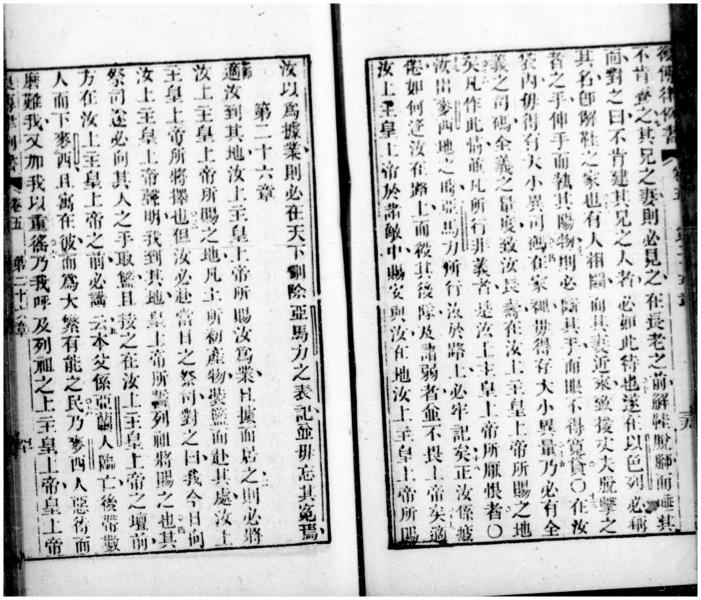 不肯娶之其兄之妻則必見之在長老之前解鞋脫腳而唾其
而對之曰不肯建其兄之人者必如此待也遂在以色列必稱
其名即解鞋之家也有人相鬬而其妻近來致援丈夫脫擊之
者之手伸手而執其陽物則必斷其手而眼不得莫貧〇在汝
袋內毋得有大小異司碼在家裡毋得存大小異量乃必有全
義之司碼全義之量度致汝長壽在汝上主皇上帝所賜之地
矣凡作此情前凡所行非義者是汝上主皇上帝所厭恨者〇
汝出麥西地之時亞馬力所行汝於路上必牢記矣正汝係疲
倦如何逐汝在路上而殺其後隊及諸弱者並不畏上帝矣適
汝上主皇上帝於諸敵中賜安與汝在地汝上主皇上帝所賜
汝以爲據業則必在天下剿除亞馬力之表記並毋忘其冤焉
第二十六章
適汝到其地汝上主皇上帝所賜汝爲業且據而居之則必將
汝上主皇上帝所賜之地凡土所初產物裝籃而赴其處汝上
主皇上帝所將擇也但汝必赴當日之祭司對之曰我今日向
汝上主皇上帝聲明我到其地皇上帝所誓列祖將賜之也其
祭司遂必向其人之手取籃且按之在汝上主皇上帝之壇前
方在汝上主皇上帝之前必講云本父係亞蘭人臨亡後帶數
人而下麥西且寓在彼而爲大繁有能之民乃麥西人惡待而
磨難我又加我以重徭乃我呼及列祖之上主皇上帝皇上帝
卷五 第二十六章